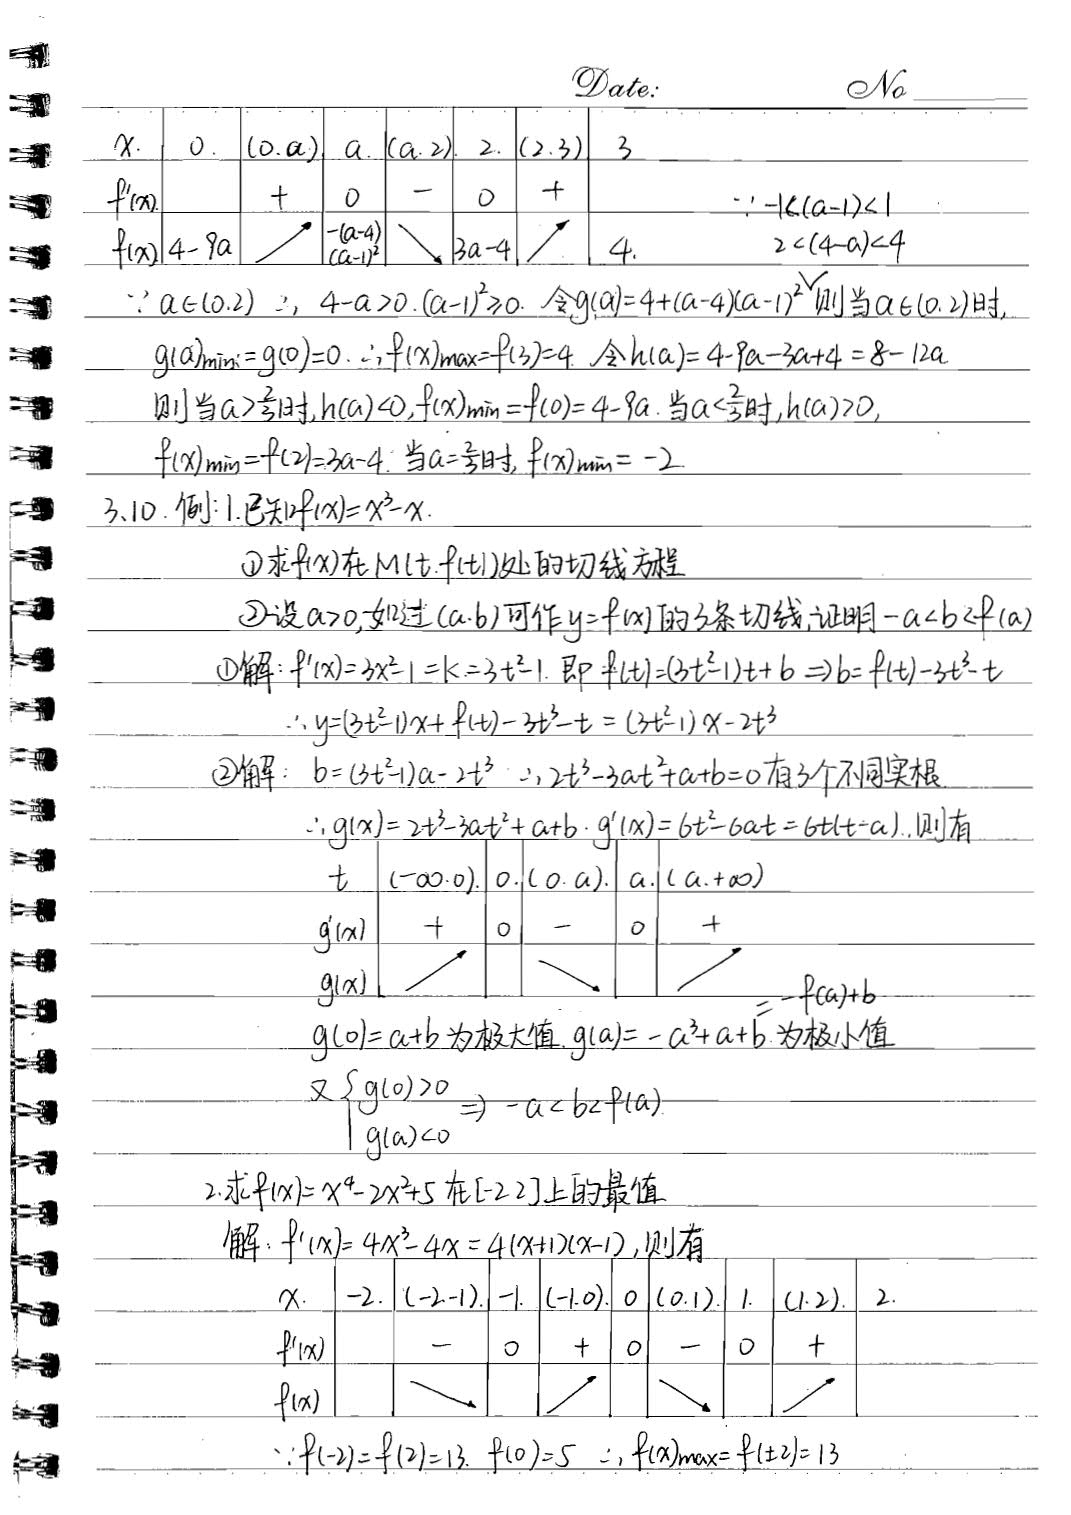 Date: No
x. 0. (0.a) a. (a.2) 2. (2.3) 3
f'(x). + 0 - 0 +
∵ -1<(a-1)<1
f(x) 4-9a ↗ -(a-4)(a-1)² ↘ 3a-4 ↗ 4.
2<(4-a)<4
∵ a∈(0.2) ∴ 4-a>0.(a-1)²≥0. 令g(a)=4+(a-4)(a-1)² 则当a∈(0.2)时,
g(a)min=g(0)=0. ∴f(x)max=f(3)=4. 令h(a)=4-9a-3a+4=8-12a
则当a>2/3时,h(a)<0,f(x)min=f(0)=4-9a.当a<2/3时,h(a)>0,
f(x)min=f(2)=3a-4. 当a=2/3时,f(x)min=-2
3.10.例:1.已知f(x)=x³-x.
①求f(x)在M(t.f(t))处的切线方程
②设a>0,如过(a.b)可作y=f(x)的3条切线,证明-a<b<f(a)
①解:f'(x)=3x²-1=k=3t²-1. 即f(t)=(3t²-1)t+b ⇒b=f(t)-3t³-t
∴y=(3t²-1)x+f(t)-3t³-t=(3t²-1)x-2t³
②解: b=(3t²-1)a-2t³ ∴2t³-3at²+a+b=0有3个不同实根
∴g(x)=2t³-3at²+a+b.g'(x)=6t²-6at=6t(t-a).则有
t (-∞.0). 0. (0.a). a. (a.+∞)
g'(x) + 0 - 0 +
g(x) ↗ ↘ ↗
=-f(a)+b
g(0)=a+b为极大值.g(a)=-a³+a+b.为极小值
又{g(0)>0
⇒ -a<b<f(a)
g(a)<0
2.求f(x)=x⁴-2x²+5在[-2 2]上的最值
解:f'(x)=4x³-4x=4(x+1)(x-1),则有
x. -2. (-2-1). -1. (-1.0). 0 (0.1). 1. (1.2). 2.
f'(x) - 0 + 0 - 0 +
f(x) ↘ ↗ ↘ ↗
∵f(-2)=f(2)=13. f(0)=5 ∴f(x)max=f(±2)=13